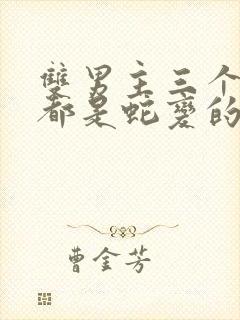 雙男主三个
都是蛇變的
曹金芳